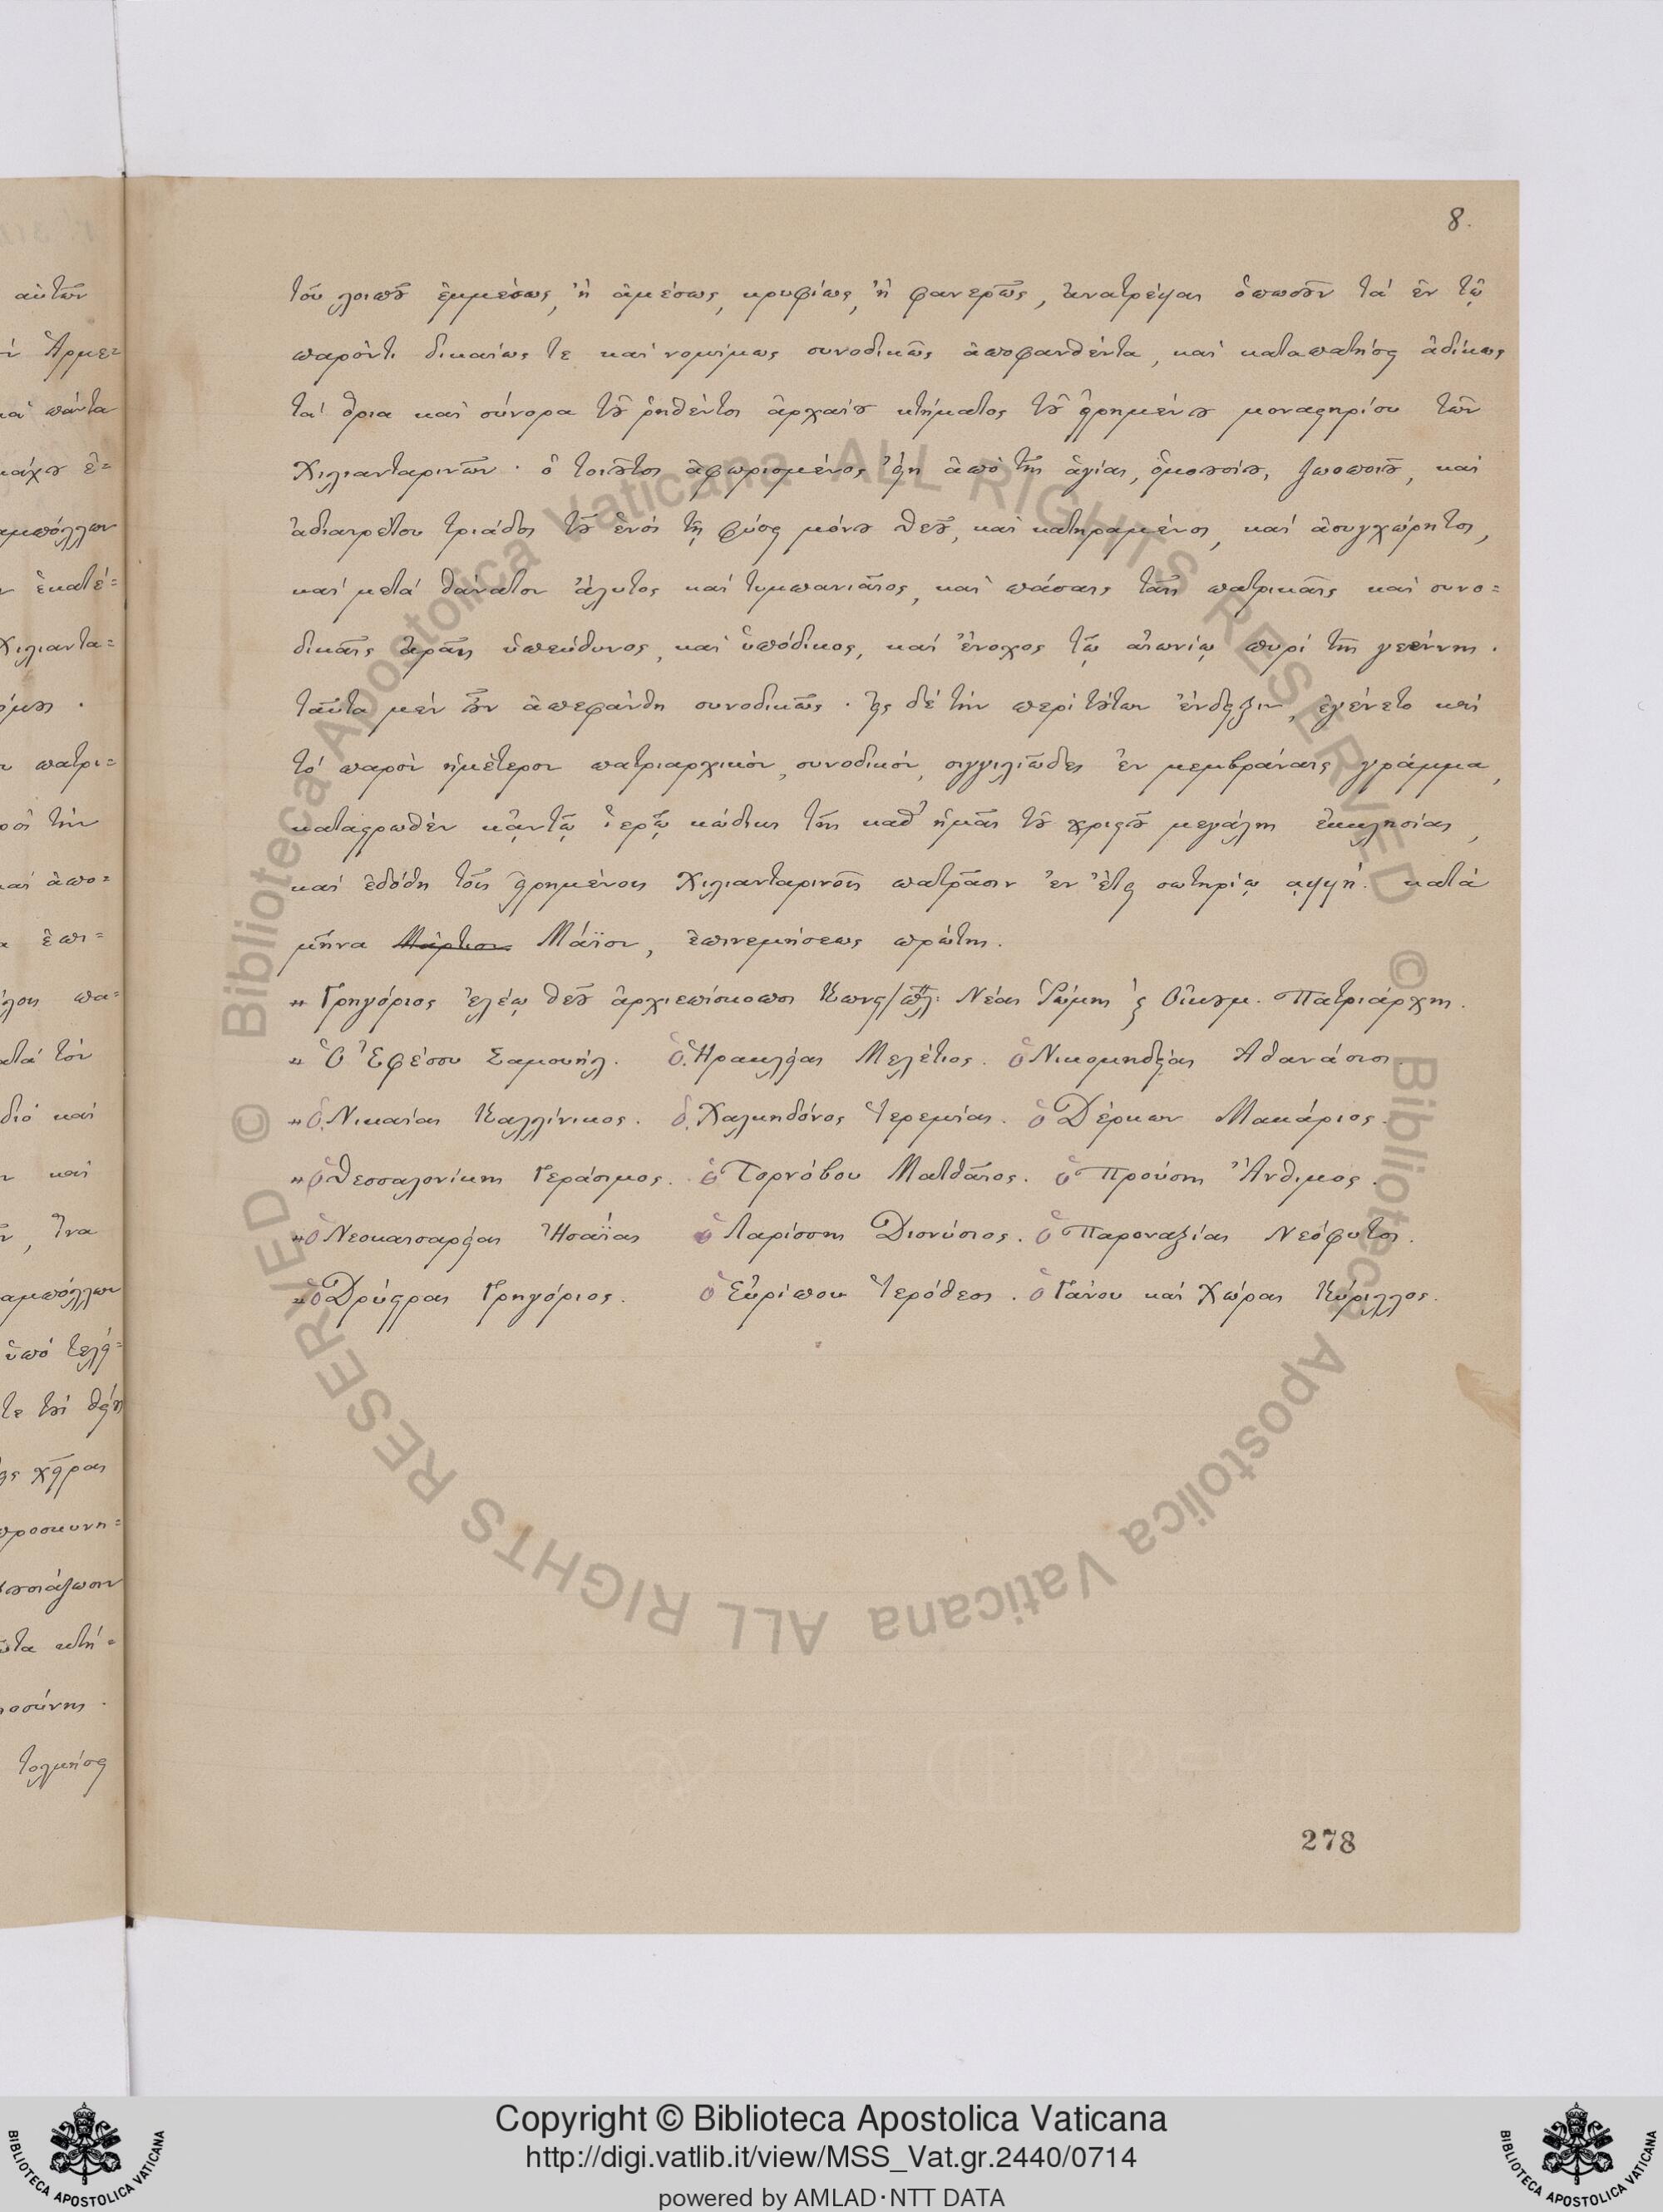 8.
τοῦ λοιποῦ ἐμμέσως, ἢ ἀμέσως, κρυφίως, ἢ φανερῶς, ἀνατρέψαι ὁπωσοῦν τὰ ἐν τῷ
παρόντι δικαίως τε καὶ νομίμως συνοδικῶς ἀποφανθέντα, καὶ καταπατήσῃ ἀδίκως
τὰ ὅρια καὶ σύνορα τοῦ ῥηθέντος ἀρχαίου κτήματος τοῦ εἰρημένου μοναστηρίου τῶν
Χιλιανταρινῶν· ὁ τοιοῦτος ἀφωρισμένος εἴη ἀπὸ τῆς ἁγίας, ὁμοουσίου, ζωοποιοῦ, καὶ
ἀδιαιρέτου τριάδος τοῦ ἑνὸς τῇ φύσει μόνου θεοῦ, καὶ κατηραμένος, καὶ ἀσυγχώρητος,
καὶ μετὰ θάνατον ἄλυτος καὶ τυμπανιαῖος, καὶ πάσαις ταῖς πατρικαῖς καὶ συνο=
δικαῖς ἀραῖς ὑπεύθυνος, καὶ ὑπόδικος, καὶ ἔνοχος τῷ αἰωνίῳ πυρὶ τῆς γεέννης.
ταῦτα μὲν οὖν ἀπεφάνθη συνοδικῶς. εἰς δὲ τὴν περὶ τούτων ἔνδειξιν, ἐγένετο καὶ
τὸ παρὸν ἡμέτερον πατριαρχικὸν, συνοδικὸν, σιγγιλιῶδες ἐν μεμβράναις γράμμα,
καταστρωθὲν κἀν τῷ ἱερῷ κώδικι τῆς καθ' ἡμᾶς τοῦ χριστοῦ μεγάλης ἐκκλησίας,
καὶ ἐδόθη τοῖς εἰρημένοις Χιλιανταρινοῖς πατράσιν ἐν ἔτει σωτηρίῳ αψϟη´. κατὰ
μῆνα Μάρτιον Μάϊον, ἐπινεμήσεως πρώτης.
» Γρηγόριος ἐλέῳ θεοῦ ἀρχιεπίσκοπος Κωνς/πλ: Νέας Ῥώμης ϗ Οἰκουμ. Πατριάρχης.
» Ὁ Ἐφέσου Σαμουήλ. ὁ Ἡρακλείας Μελέτιος. ὁ Νικομηδείας Ἀθανάσιος.
» ὁ Νικαίας Καλλίνικος. ὁ Χαλκηδόνος Ἱερεμίας. ὁ Δέρκων Μακάριος.
» ὁ Θεσσαλονίκης Γεράσιμος. ὁ Τορνόβου Ματθαῖος. ὁ Προύσης Ἄνθιμος.
» ὁ Νεοκαισαρείας Ἡσαΐας ὁ Λαρίσσης Διονύσιος. ὁ Παροναξίας Νεόφυτος.
» ὁ Δρύστρας Γρηγόριος. ὁ Εὐρίπου Ἱερόθεος. ὁ Γάνου καὶ Χώρας Κύριλλος.
278
© Biblioteca Apostolica Vaticana ALL RIGHTS RESERVED
© Biblioteca Apostolica Vaticana ALL RIGHTS RESERVED
Copyright © Biblioteca Apostolica Vaticana
http://digi.vatlib.it/view/MSS_Vat.gr.2440/0714
powered by AMLAD·NTT DATA
BIBLIOTECA APOSTOLICA VATICANA
BIBLIOTECA APOSTOLICA VATICANA